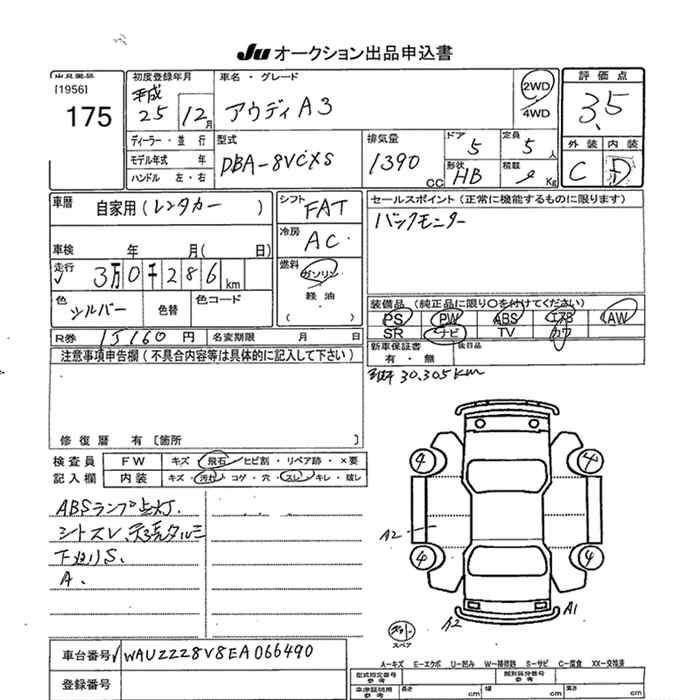 JU オークション出品申込書
出品番号
[1956]
175
初度登録年月
平成
25 12月
車名・グレード
アウディA3
2WD
4WD
評価点
3.5
外装 内装
C D
ディーラー・並行
モデル年式 年
ハンドル 左・右
型式
DBA-8VCXS
排気量
1390 CC
ドア
5
定員
5人
形状
HB
積載
Kg
車歴 自家用(レンタカー )
シフト
FAT
車検 年 月( 日)
冷房
AC
走行
3万0千286km
燃料
ガソリン
軽油
( )
色
シルバー
色替
色コード
セールスポイント(正常に機能するものに限ります)
バックモニター
装備品(純正品に限り○を付けてください)
PS PW ABS エアB AW
SR ナビ TV カワ
R券 15160円 名変期限 月 日
新車保証書
有・無
後日品
注意事項申告欄(不具合内容等は具体的に記入して下さい)
30.305km
修復歴 有〔箇所 〕
検査員
記入欄
FW キズ・飛石・ヒビ割・リペア跡・×要
内装 キズ・汚れ・コゲ・穴・スレ・キレ・破レ
ABSランプ点灯.
シートスレ、天張タルミ
下廻りS.
A.
4 4
A2
4 4
A2 A1
スペア
車台番号 WAUZZZ8V8EA066490
登録番号
A−キズ E−エクボ U−凹み W−補修跡 S−サビ C−腐食 XX−交換済
型式指定番号
参考
類別区分番号
参考
車庫証明用
参考
長さ cm 幅 cm 高さ cm